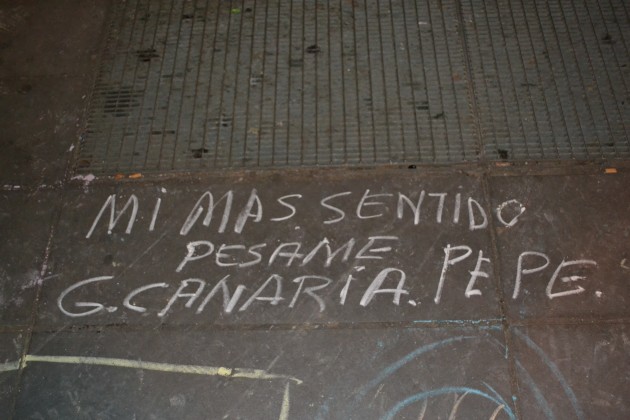 MI MAS. SENTIDO
PESAME
G. CANARIA. PEPE.